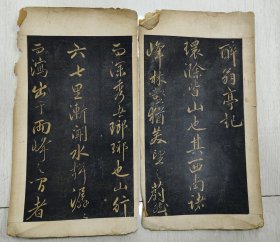 醉翁亭記
環滁皆山也其西南諸
峰林壑猶美望之蔚然
而深秀者瑯琊也山行
六七里漸聞水聲潺
而瀉出于兩峰之間者